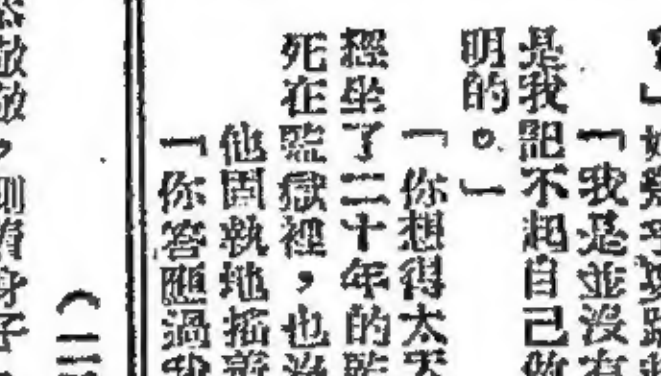 「我是並沒有
是我記不起自己做
明的。」
「你想得太天
經坐了二十年的監
死在監獄裡，也沒
他固執地搖着
「你答應過我
（二
敬敬，側着身子